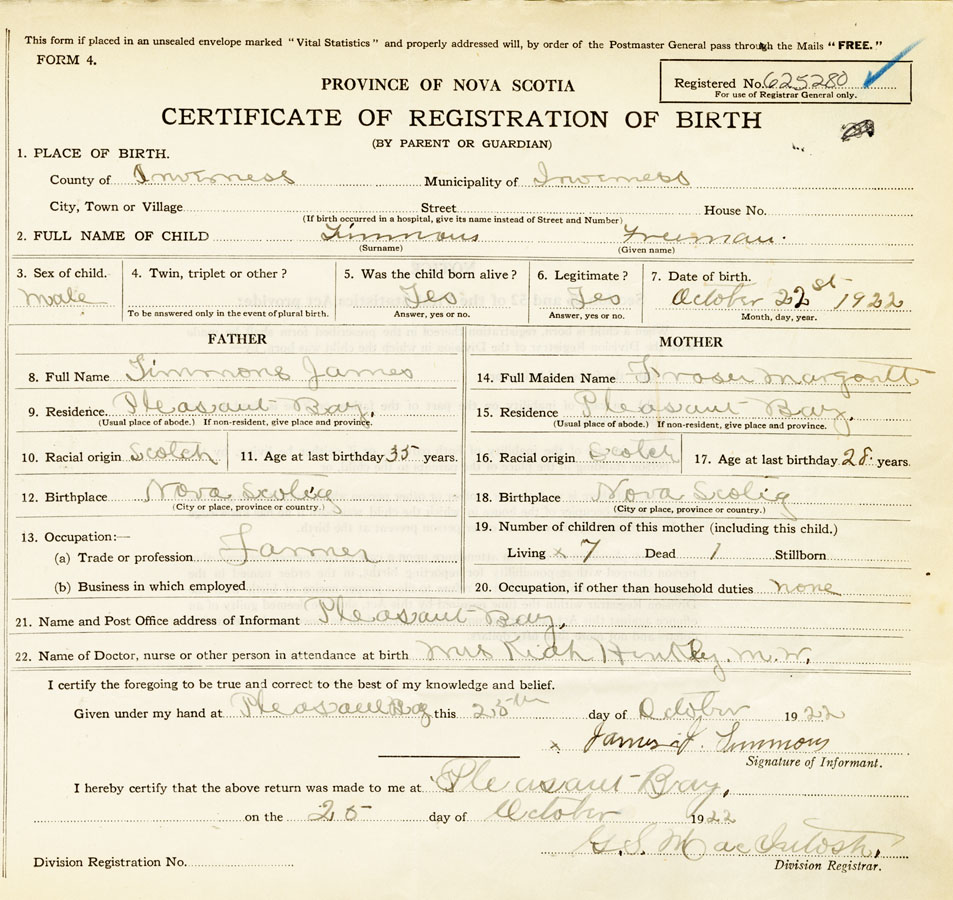 This form if placed in an unsealed envelope marked "Vital Statistics" and properly addressed will, by order of the Postmaster General pass through the Mails "FREE."
FORM 4.
Registered No. 625280
For use of Registrar General only.
PROVINCE OF NOVA SCOTIA
CERTIFICATE OF REGISTRATION OF BIRTH
(BY PARENT OR GUARDIAN)
1. PLACE OF BIRTH.
County of Inverness Municipality of Inverness
City, Town or Village Street House No.
(If birth occurred in a hospital, give its name instead of Street and Number)
2. FULL NAME OF CHILD Timmons Freeman.
(Surname) (Given name)
3. Sex of child. 4. Twin, triplet or other ? 5. Was the child born alive ? 6. Legitimate ? 7. Date of birth.
Male Yes Yes October 22st 1922
To be answered only in the event of plural birth. Answer, yes or no. Answer, yes or no. Month, day, year.
FATHER MOTHER
8. Full Name Timmons James 14. Full Maiden Name Fraser
9. Residence. Pleasant Bay, 15. Residence Pleasant Bay,
(Usual place of abode.) If non-resident, give place and province. (Usual place of abode.) If non-resident, give place and province.
10. Racial origin Scotch 11. Age at last birthday 35 years. 16. Racial origin Scotch 17. Age at last birthday 28 years.
12. Birthplace Nova Scotia 18. Birthplace Nova Scotia
(City or place, province or country.) (City or place, province or country.)
13. Occupation:— 19. Number of children of this mother (including this child.)
(a) Trade or profession Farmer Living x 7 Dead 1 Stillborn
(b) Business in which employed 20. Occupation, if other than household duties none
21. Name and Post Office address of Informant Pleasant Bay,
22. Name of Doctor, nurse or other person in attendance at birth Mrs Hinkley. M.W.
I certify the foregoing to be true and correct to the best of my knowledge and belief.
Given under my hand at Pleasant Bay this 25th day of October 1922
x James Timmons
Signature of Informant.
I hereby certify that the above return was made to me at Pleasant Bay,
on the 25 day of October 1922
G. S. MacIntosh,
Division Registration No. Division Registrar.